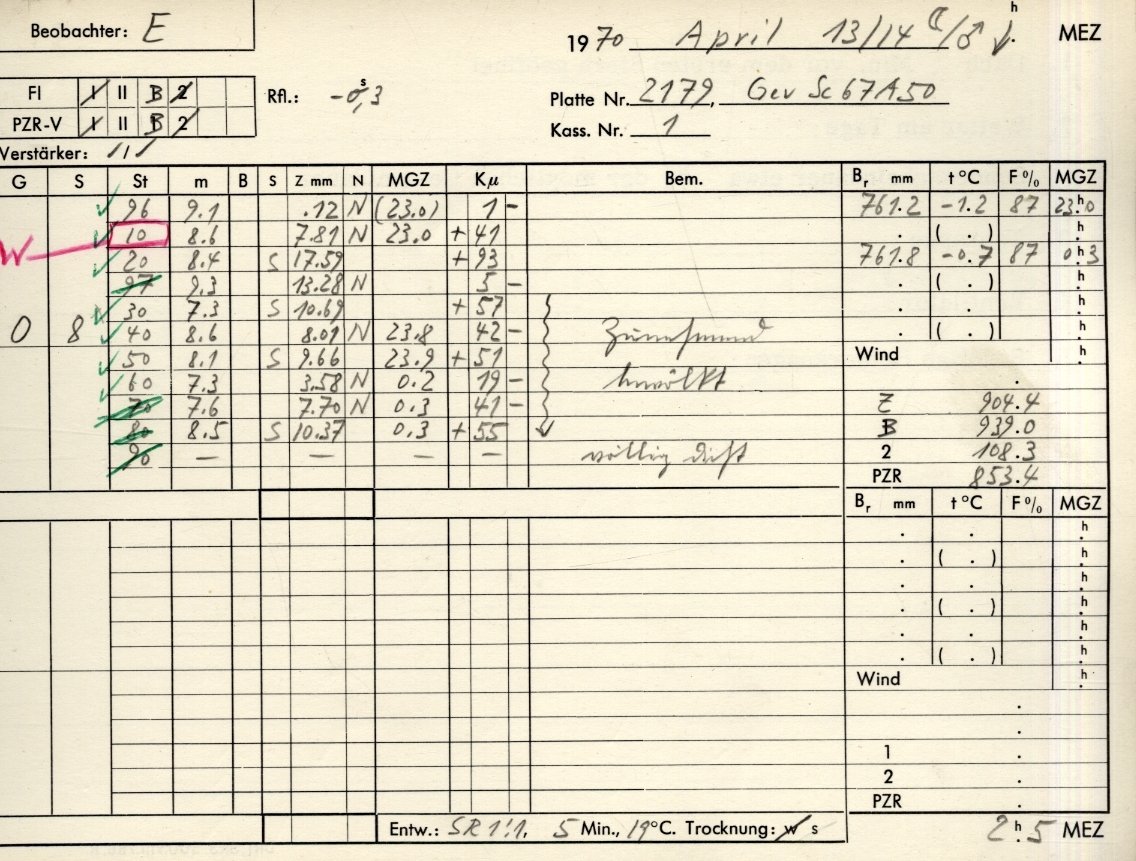 Beobachter: E
1970 April 13/14 ☾/♂ h. MEZ
FI I II B 2
PZR-V I II B 2
Rfl.: -0,3 s
Platte Nr. 2179, Gev Sc67A50
Kass. Nr. 1
Verstärker: 1/1
G S St m B S Z mm N MGZ Kµ Bem. Br mm t °C F % MGZ
96 9.1 .12 N (23.0) 1 - 761.2 -1.2 87 23h0
W 10 8.6 7.81 N 23.0 + 41 . ( . ) h.
20 8.4 S 17.59 + 93 761.8 -0.7 87 0h3
97 9.3 13.28 N 5 - . ( . ) h.
30 7.3 S 10.69 + 57 . . h.
0 8 40 8.6 8.01 N 23.8 42 - Zunehmend . ( . ) h.
50 8.1 S 9.66 23.9 + 51 Wind h.
60 7.3 3.58 N 0.2 19 - bewölkt .
70 7.6 7.70 N 0.3 41 - Z 904.4
80 8.5 S 10.37 0.3 + 55 B 939.0
90 — — — — völlig dicht 2 108.3
PZR 853.4
Br mm t °C F % MGZ
. . h.
. ( . ) h.
. . h.
. ( . ) h.
. . h.
. ( . ) h.
Wind h.
.
.
1 .
2 .
PZR .
Entw.: SR 1:1, 5 Min., 19°C. Trocknung: w s 2h.5 MEZ